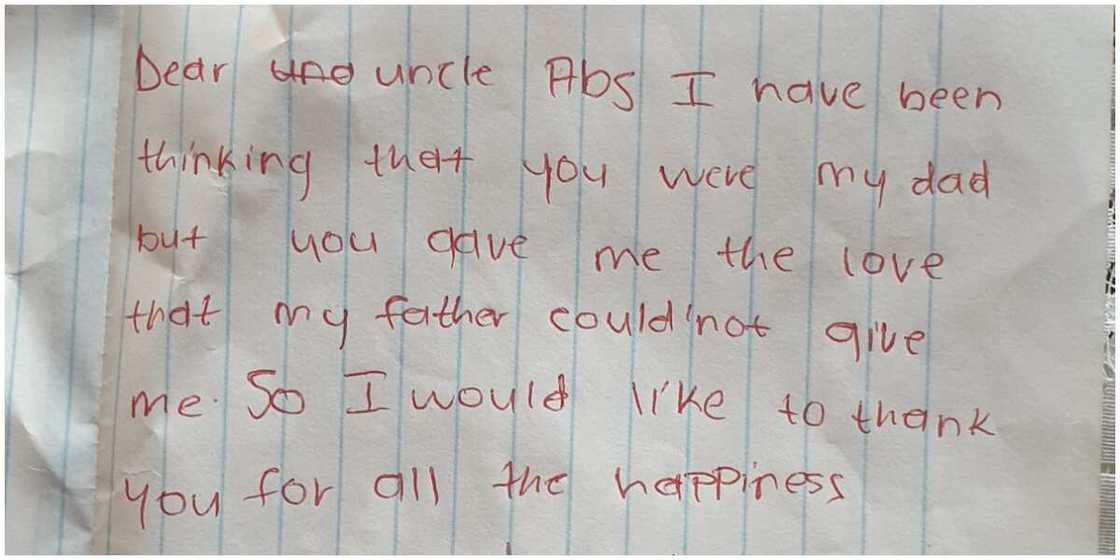 Dear uncle Abs I have been
thinking that you were my dad
but you gave me the love
that my father could'not give
me. So I would like to thank
you for all the happiness